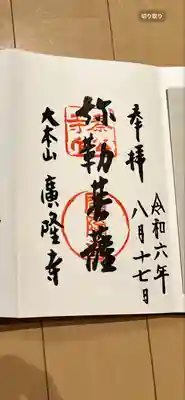 切り取り
奉拝
令和六年
八月十七日
弥勒菩薩
大本山 廣隆寺